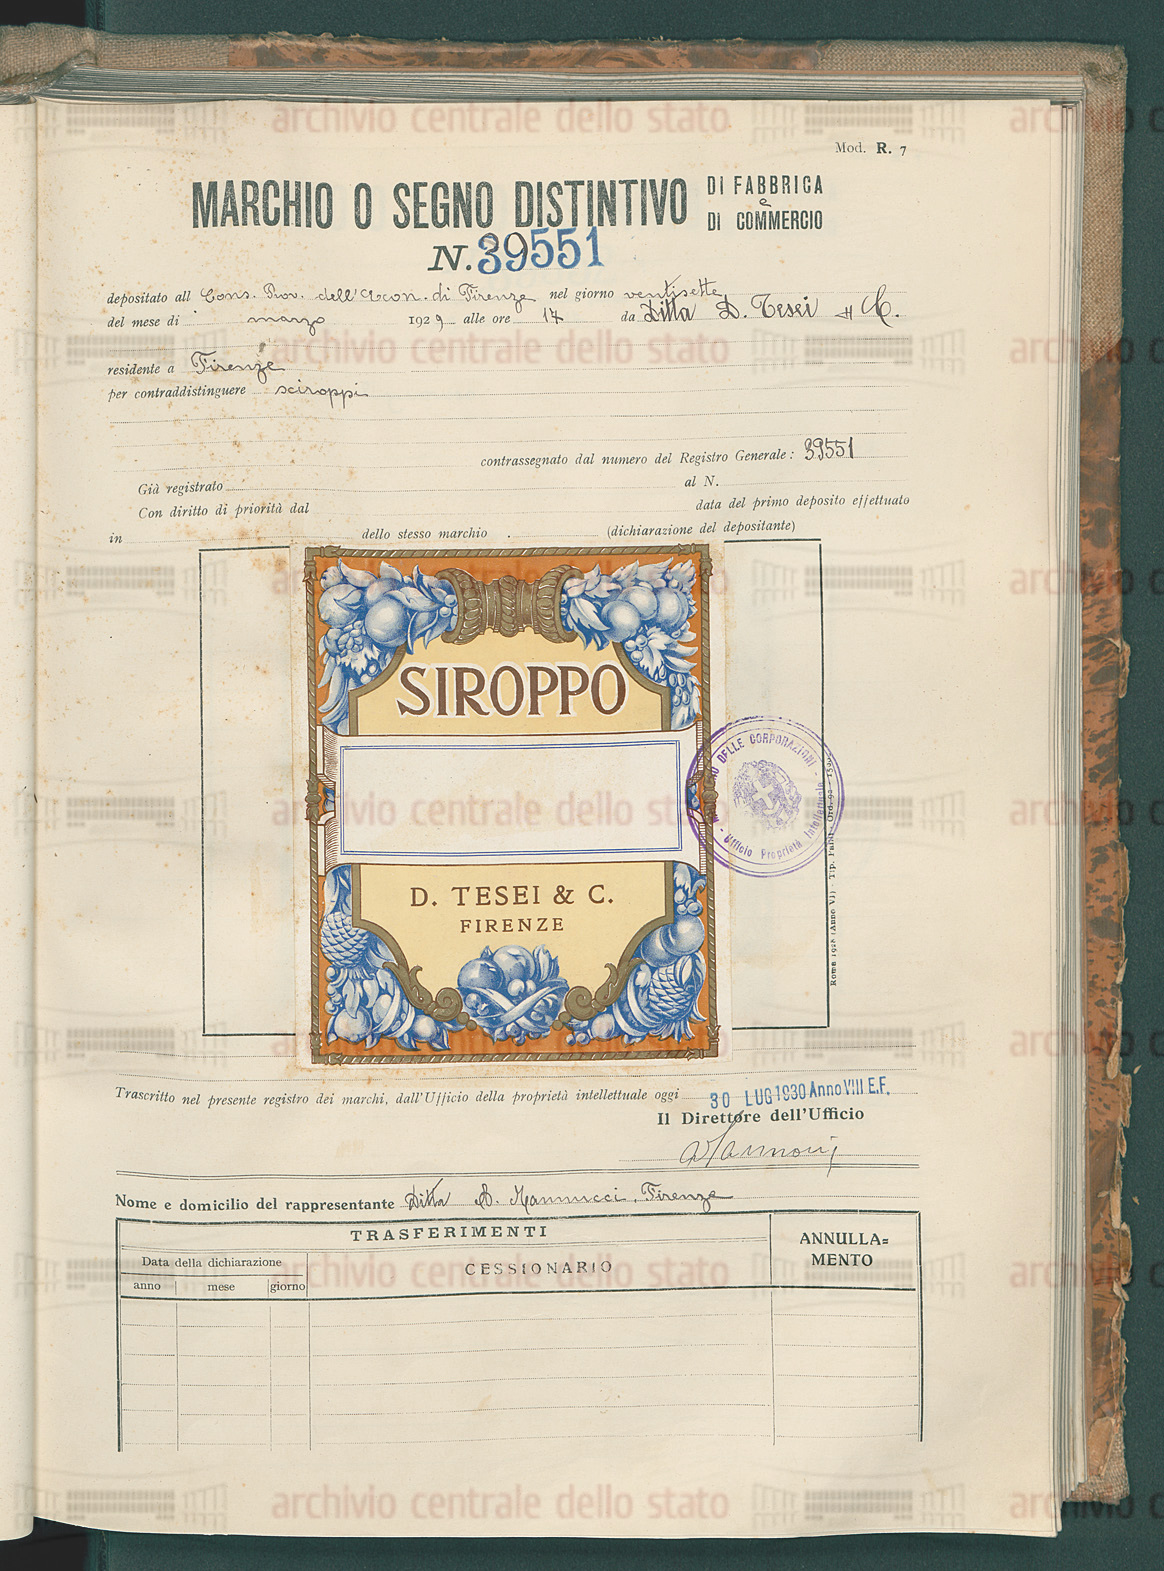 Mod. R. 7
MARCHIO O SEGNO DISTINTIVO DI FABBRICA e DI COMMERCIO
N. 39551
depositato all Cons. Prov. dell'Econ. di Firenze nel giorno ventisette
del mese di marzo 1929 alle ore 17 da Ditta D. Tesei & C.
residente a Firenze
per contraddistinguere sciroppi
contrassegnato dal numero del Registro Generale: 39551
Già registrato al N.
Con diritto di priorità dal data del primo deposito effettuato
in dello stesso marchio (dichiarazione del depositante)
SIROPPO
D. TESEI & C.
FIRENZE
DELLE CORPORAZIONI
Ufficio Proprietà Intellettuale
Roma 1928 (Anno VI) - Tip.
Trascritto nel presente registro dei marchi, dall'Ufficio della proprietà intellettuale oggi 30 LUG 1930 Anno VIII E.F.
Il Direttore dell'Ufficio
Nome e domicilio del rappresentante Ditta A. Mannucci, Firenze
TRASFERIMENTI
ANNULLA=
MENTO
Data della dichiarazione
CESSIONARIO
anno mese giorno
archivio centrale dello stato